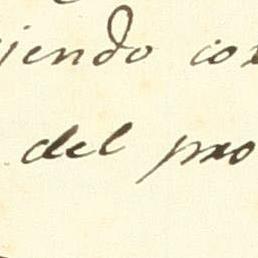 jendo co
del pro